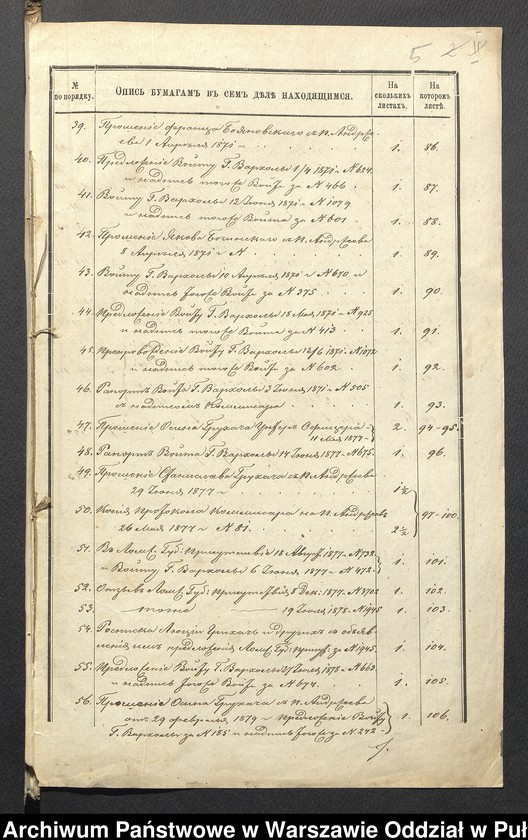 5
№ по порядку.
Опись бумагамъ въ семъ дѣлѣ находящимся.
На сколькихъ листахъ.
На которомъ листѣ.
39. Прошеніе Франца Бояновскаго съ П. Андре-
ева 1 Апрѣля 1871 1. 86.
40. Предложеніе Войту Г. Вархолы 1/4 1871 N 624
и надпись тогоже Войта за N 466 1. 87.
41. Войту Г. Вархолы 12 Іюня 1871 N 1079
и надпись тогоже Войта за N 601 1. 88.
42. Прошеніе Якова с. П. Андреева
8 Апрѣля 1871 N 1. 89.
43. Войту Г. Вархолы 10 Апрѣля 1871 N 670 и
надпись тогоже Войта за N 375 1. 90.
44. Предложеніе Войту Г. Вархолы 18 Мая 1871 N 925
и надпись тогоже Войта за N 413 1. 91.
45. Препровожденіе Войту Г. Вархолы 1871 N 1072
и надпись тогоже Войта за N 602 1. 92.
46. Рапортъ Войта Г. Вархолы 3 Іюня 1871 N 505
съ надписью Коммисара 1. 93.
47. Прошеніе Осипа Грухача 2. 94-95.
11 Мая 1877
48. Рапортъ Войта Г. Вархолы 14 Іюня 1877 N 675 1. 96.
49. Прошеніе Станислава Грухача с. П. Андреева
29 Іюня 1877 1½
50. Копія Протокола Коммисара на П. Андреевъ 97-100.
26 Мая 1877 N 81. 2½
51. Въ Ломж. Губ: Присутствіе 18 Август. 1877 N 732
и Войту Г. Вархолы 6 Іюня 1877 N 472 1. 101.
52. Отзывъ Ломж. Губ: Присутствія 8 Дек: 1877 N 3702 1. 102.
53. тоже 19 Іюля 1878 N 945 1. 103.
54. Росписка Грухач и другихъ объяв-
леніи имъ предложенія Ломж. Губ: Присут: за N 945. 1. 104.
55. Предложеніе Войту Г. Вархолы 27 Іюля 1878 N 663
и надпись тогоже Войта за N 674. 1. 105.
56. Прошеніе Осипа Грухача с. П. Андреева
отъ 29 февраля 1879 предложеніе Войту 1. 106.
Г. Вархолы за N 185 и надпись тогоже за N 242
Archiwum Państwowe w Warszawie Oddział w Puł